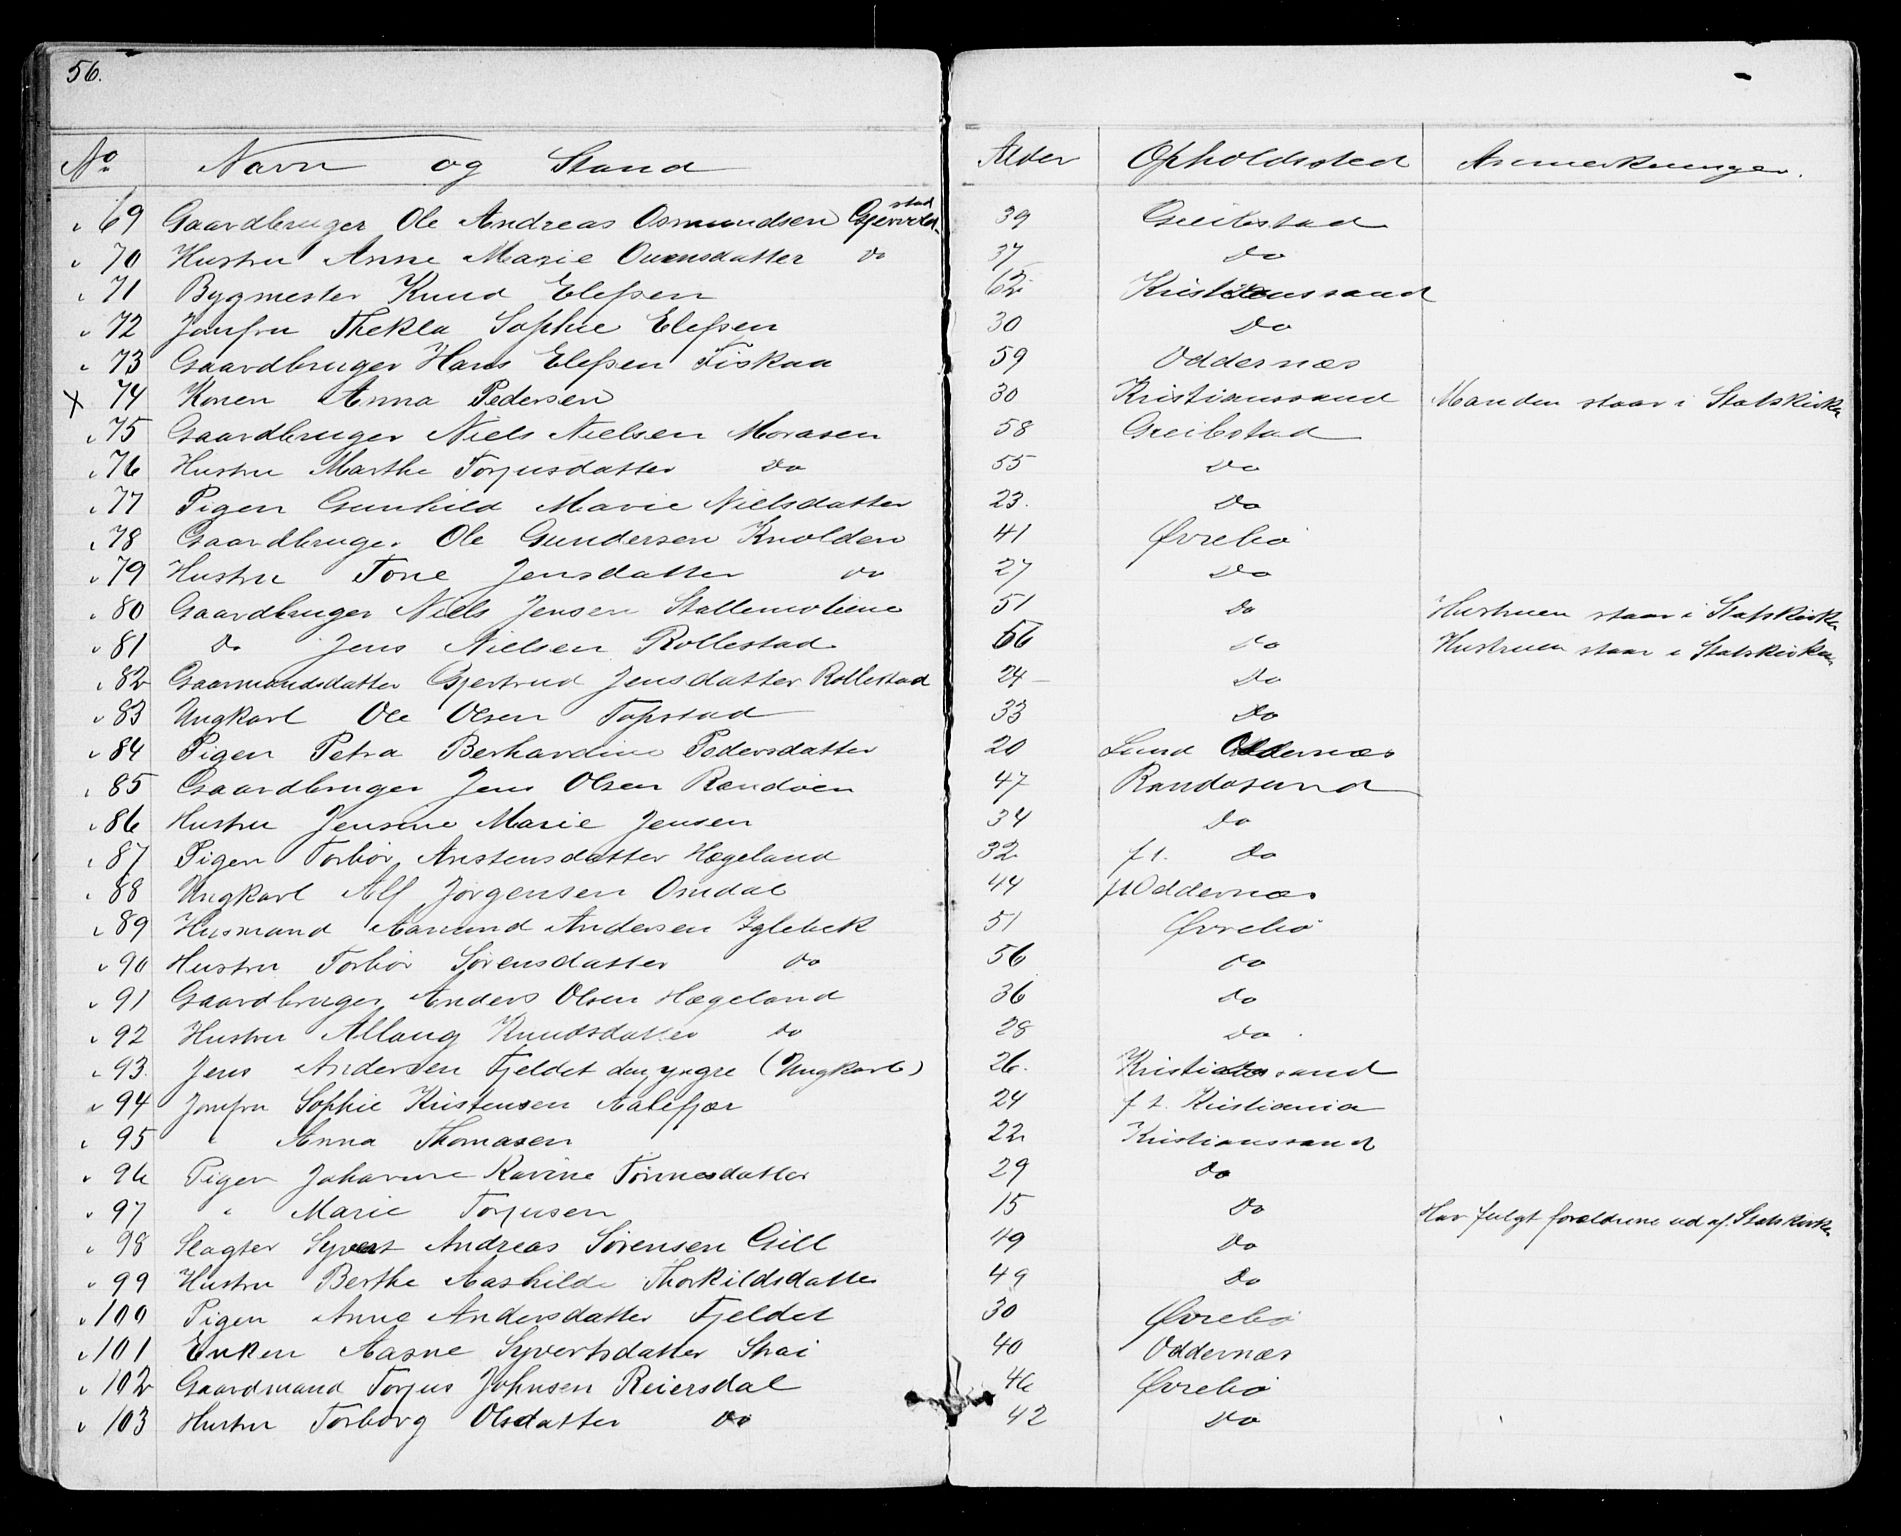 56.
No Navn og Stand Alder Opholdssted Anmerkninger.
69 Gaardbruger Ole Andreas Osmundsen Gjervoldstad 39 Greibstad
70 Hustru Anne Marie Ouensdatter Do 37 Do
71 Bygmester Knud Elefsen 62 Kristianssand
72 Jomfru Thekla Sophie Elefsen 30 Do
73 Gaardbruger Hans Elefsen Fiskaa 59 Oddernæs
x 74 Konen Anna Pedersen 30 Kristianssand Manden staar i Statskirken
75 Gaardbruger Niels Nielsen Morasen 58 Greibstad
76 Hustru Marthe Torjusdatter Do 55 Do
77 Pigen Gunhild Marie Nielsdatter 23. Do
78 Gaardbruger Ole Gundersen Knolden 41 Øvrebø
79 Hustru Tone Jensdatter Do 27 Do
80 Gaardbruger Niels Jensen Stallemoliene 51 Do Hustruen staar i Statskirken
81 Do Jens Nielsen Rollestad 56 Do Hustruen staar i Statskirken
82 Gaarmandsdatter Gjertrud Jensdatter Rollestad 24 Do
83 Ungkarl Ole Olsen Topstad 33 Do
84 Pigen Petra Berhardine Pedersdatter 20 Lund Oddernæs
85 Gaardbruger Jens Olsen Randøen 47 Randøsund
86 Hustru Jensine Marie Jensen 34 Do
87 Pigen Torbør Anstensdatter Hægeland 32 f t. Do
88 Ungkarl Alf Jørgensen Omdal 44 ft Oddernæs
89 Husmand Aanund Andersen Iglebek 51 Øvrebø
90 Hustru Torbør Sørensdatter Do 56 Do
91 Gaardbruger Anders Olsen Hægeland 36 Do
92 Hustru Allaug Knudsdatter Do 28 Do
93. Jens Andersen Fjeldet den yngre (Ungkarl) 26. Kristianssand
94 Jomfru Sophie Kristensen Aalefjær 24 f t. Kristiania
95 " Anna Thomasen 22 Kristianssand
96 Pigen Johanne Karine Tønnesdatter 29 Do
97 " Marie Torjusen 15 Do Har fulgt forældrene ud af Statskirken
98 Slagter Syvert Andreas Sørensen Gill 49 Do
99 Hustru Berthe Aashilde Thorkildsdatter 49 Do
100 Pigen Anne Andersdatter Fjeldet 30 Øvrebø
101 Enken Aasne Syvertsdatter Strai 40 Oddernæs
102 Gaardmand Torjus Johnsen Reiersdal 46 Øvrebø
103 Hustru Torborg Olsdatter Do 42 Do